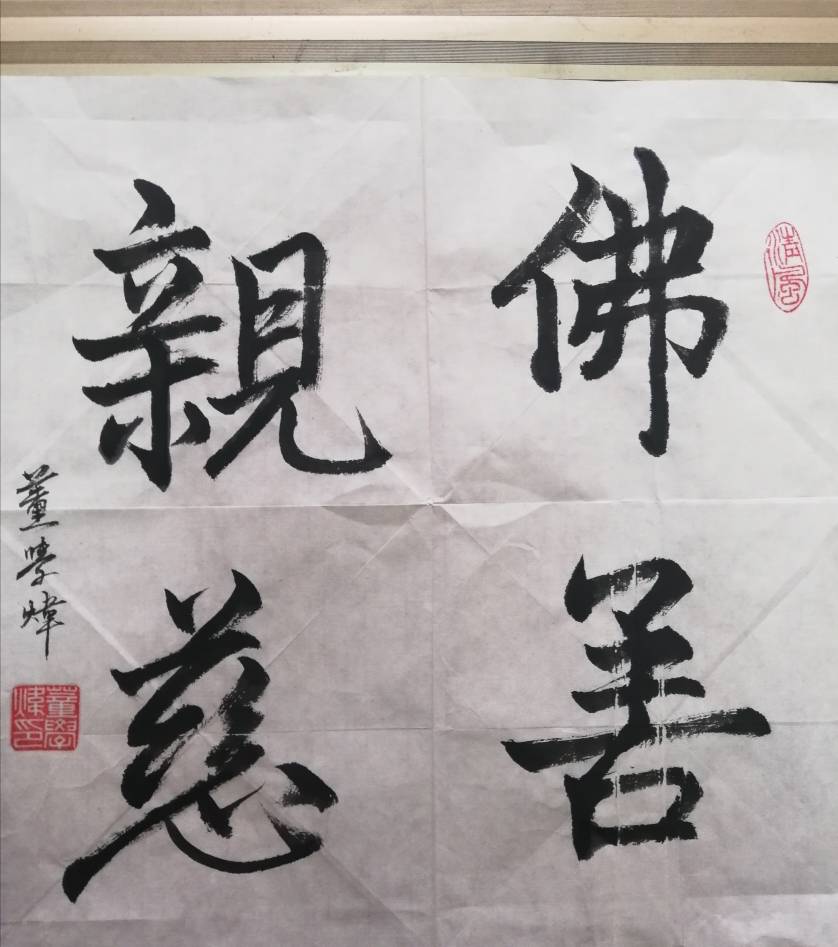 佛善
親慈
董學煒
清風
董學煒印